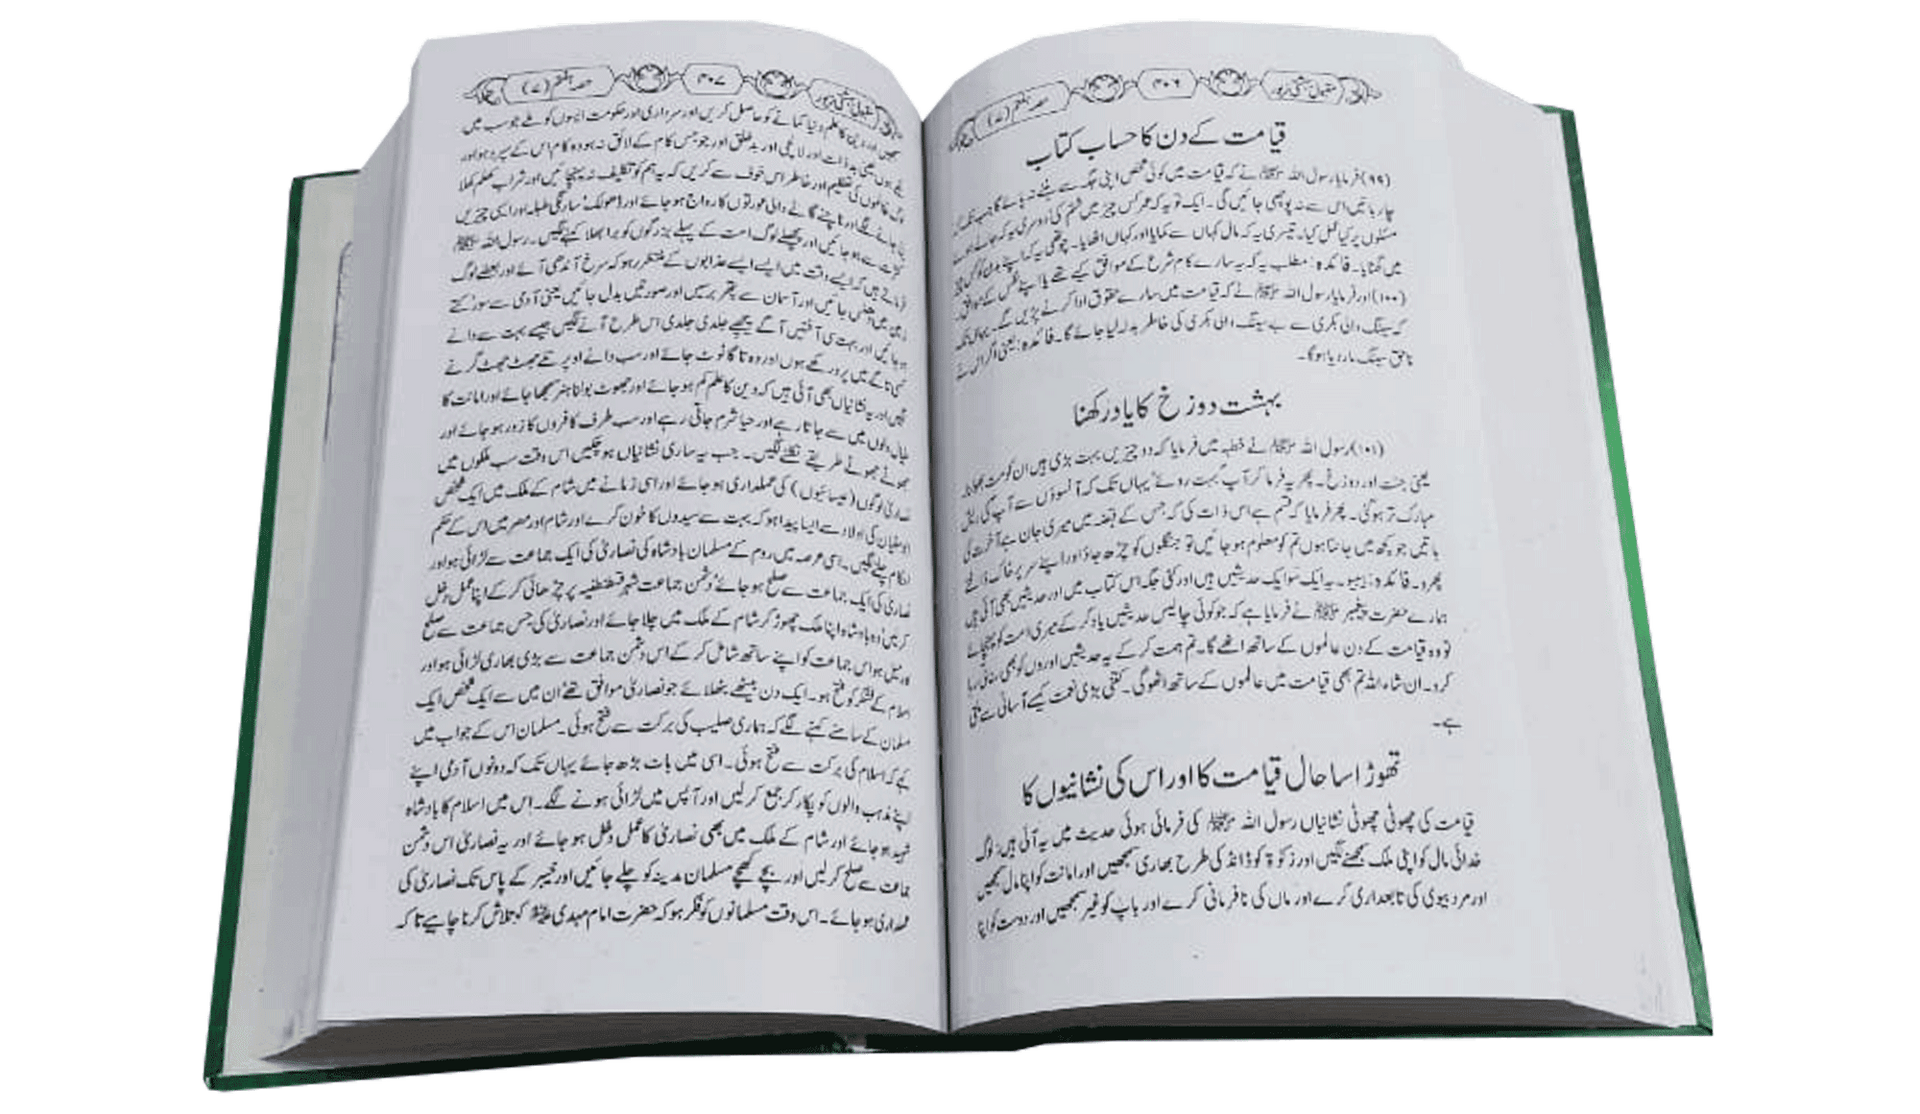 مقبول بہشتی زیور ۳۰۶ حصہ ہفتم (۷)
قیامت کے دن کا حساب کتاب
(۹۹) فرمایا رسول اللہ ﷺ نے کہ قیامت میں کوئی شخص اپنی جگہ سے ہٹنے نہ پائے گا جب تک کہ
چار باتیں اس سے نہ پوچھی جائیں گی۔ ایک تو یہ کہ عمر کس چیز میں ختم کی دوسری یہ کہ جانے ہوئے
مسئلوں پر کیا عمل کیا۔ تیسری یہ کہ مال کہاں سے کمایا اور کہاں اٹھایا۔ چوتھی یہ کہ اپنے بدن کو کس چیز
میں گھٹایا۔ فائدہ: مطلب یہ کہ یہ سارے کام شرع کے موافق کیے تھے یا اپنے نفس کے موافق۔
(۱۰۰) اور فرمایا رسول اللہ ﷺ نے کہ قیامت میں سارے حقوق ادا کرنے پڑیں گے۔ یہاں تک
کہ سینگ والی بکری سے بے سینگ والی بکری کی خاطر بدلہ لیا جائے گا۔ فائدہ: یعنی اگر اس نے
ناحق سینگ مار دیا ہوگا۔
بہشت دوزخ کا یاد رکھنا
(۱۰۱) رسول اللہ ﷺ نے خطبہ میں فرمایا کہ دو چیزیں بہت بڑی ہیں ان کو مت بھولنا۔
یعنی جنت اور دوزخ۔ پھر یہ فرما کر آپ بہت روئے یہاں تک کہ آنسوؤں سے آپ کی ریش
مبارک تر ہوگئی۔ پھر فرمایا کہ قسم ہے اس ذات کی کہ جس کے قبضہ میں میری جان ہے آخرت کی
باتیں جو کچھ میں جانتا ہوں تم کو معلوم ہو جائیں تو جنگلوں کو چڑھ جاؤ اور اپنے سر پر خاک ڈالتے
پھرو۔ فائدہ: بیبیو۔ یہ ایک سو ایک حدیثیں ہیں اور کئی جگہ اس کتاب میں اور حدیثیں بھی آئی ہیں
ہمارے حضرت پیغمبر ﷺ نے فرمایا ہے کہ جو کوئی چالیس حدیثیں یاد کر کے میری امت کو پہنچائے
تو وہ قیامت کے دن عالموں کے ساتھ اٹھے گا۔ تم ہمت کر کے یہ حدیثیں اوروں کو بھی سناتی رہا
کرو۔ ان شاء اللہ تم بھی قیامت میں عالموں کے ساتھ اٹھوگی۔ کتنی بڑی نعمت کیسے آسانی سے ملتی
ہے۔
تھوڑا سا حال قیامت کا اور اس کی نشانیوں کا
قیامت کی چھوٹی چھوٹی نشانیاں رسول اللہ ﷺ کی فرمائی ہوئی حدیث میں یہ آئی ہیں: لوگ
خدائی مال کو اپنی ملک سمجھنے لگیں اور زکوٰۃ کو ڈانڈ کی طرح بھاری سمجھیں اور امانت کو اپنا مال سمجھیں
اور مرد بیوی کی تابعداری کرے اور ماں کی نافرمانی کرے اور باپ کو غیر سمجھیں اور دوست کو اپنا
مقبول بہشتی زیور ۳۰۷ حصہ ہفتم (۷)
سمجھیں اور دین کا علم دنیا کمانے کو حاصل کریں اور سرداری اور حکومت ایسوں کو ملے جو سب میں
نکمے ہوں یعنی بد ذات اور لالچی اور بد خلق اور جو جس کام کے لائق نہ ہو وہ کام اس کے سپرد ہو اور
لوگ ظالموں کی تعظیم اور خاطر اس خوف سے کریں کہ یہ ہم کو تکلیف نہ پہنچائیں اور شراب کھلم کھلا
پی جانے لگے اور ناچنے گانے والی عورتوں کا رواج ہو جائے اور ڈھولک سارنگی طبلہ اور ایسی چیزیں
کثرت سے ہو جائیں اور پچھلے لوگ امت کے پہلے بزرگوں کو برا بھلا کہنے لگیں۔ رسول اللہ ﷺ
فرماتے ہیں کہ ایسے وقت میں ایسے ایسے عذابوں کے منتظر رہو کہ سرخ آندھی آئے اور بعضے لوگ
زمین میں دھنس جائیں اور آسمان سے پتھر برسیں اور صورتیں بدل جائیں یعنی آدمی سے سور کتے
ہو جائیں اور بہت سی آفتیں آگے پیچھے جلدی جلدی اس طرح آنے لگیں جیسے بہت سے دانے
کسی تاگے میں پرو رکھے ہوں اور وہ تاگا ٹوٹ جائے اور سب دانے اوپر تلے جھٹ جھٹ گرنے
لگیں اور یہ نشانیاں بھی آئی ہیں کہ دین کا علم کم ہو جائے اور جھوٹ بولنا ہنر سمجھا جائے اور امانت کا
خیال دلوں میں سے جاتا رہے اور حیا شرم جاتی رہے اور سب طرف کافروں کا زور ہو جائے اور
جھوٹے جھوٹے طریقے نکلنے لگیں۔ جب یہ ساری نشانیاں ہو چکیں اس وقت سب ملکوں میں
نصاریٰ لوگوں (عیسائیوں) کی عملداری ہو جائے اور اسی زمانے میں شام کے ملک میں ایک شخص
ابوسفیان کی اولاد سے ایسا پیدا ہو کہ بہت سے سیدوں کا خون کرے اور شام اور مصر میں اس کے حکم
احکام چلنے لگیں۔ اسی عرصہ میں روم کے مسلمان بادشاہ کی نصاریٰ کی ایک جماعت سے لڑائی ہو اور
نصاریٰ کی ایک جماعت سے صلح ہو جائے دشمن جماعت شہر قسطنطنیہ پر چڑھائی کر کے اپنا عمل دخل
کر لیں وہ بادشاہ اپنا ملک چھوڑ کر شام کے ملک میں چلا جائے اور نصاریٰ کی جس جماعت سے صلح
اور میل ہو اس جماعت کو اپنے ساتھ شامل کر کے اس دشمن جماعت سے بڑی بھاری لڑائی ہو اور
اسلام کے لشکر کو فتح ہو۔ ایک دن بیٹھے بٹھلائے جو نصاریٰ موافق تھے ان میں سے ایک شخص ایک
مسلمان کے سامنے کہنے لگے کہ ہماری صلیب کی برکت سے فتح ہوئی۔ مسلمان اس کے جواب میں
کہے کہ اسلام کی برکت سے فتح ہوئی۔ اسی میں بات بڑھ جائے یہاں تک کہ دونوں آدمی اپنے
اپنے مذہب والوں کو پکار کر جمع کر لیں اور آپس میں لڑائی ہونے لگے۔ اس میں اسلام کا بادشاہ
شہید ہو جائے اور شام کے ملک میں بھی نصاریٰ کا عمل دخل ہو جائے اور یہ نصاریٰ اس دشمن
جماعت سے صلح کر لیں اور بچے کھچے مسلمان مدینہ کو چلے جائیں اور خیبر کے پاس تک نصاریٰ کی
عملداری ہو جائے۔ اس وقت مسلمانوں کو فکر ہو کہ حضرت امام مہدی کو تلاش کرنا چاہیے تاکہ